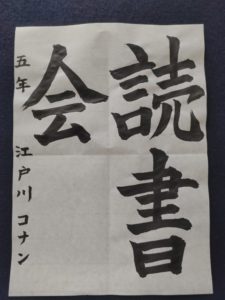 読書
会
五年 江戸川コナン